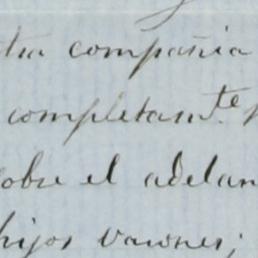 tra compañia
completam.te
sobre el adelan
hijos varones;